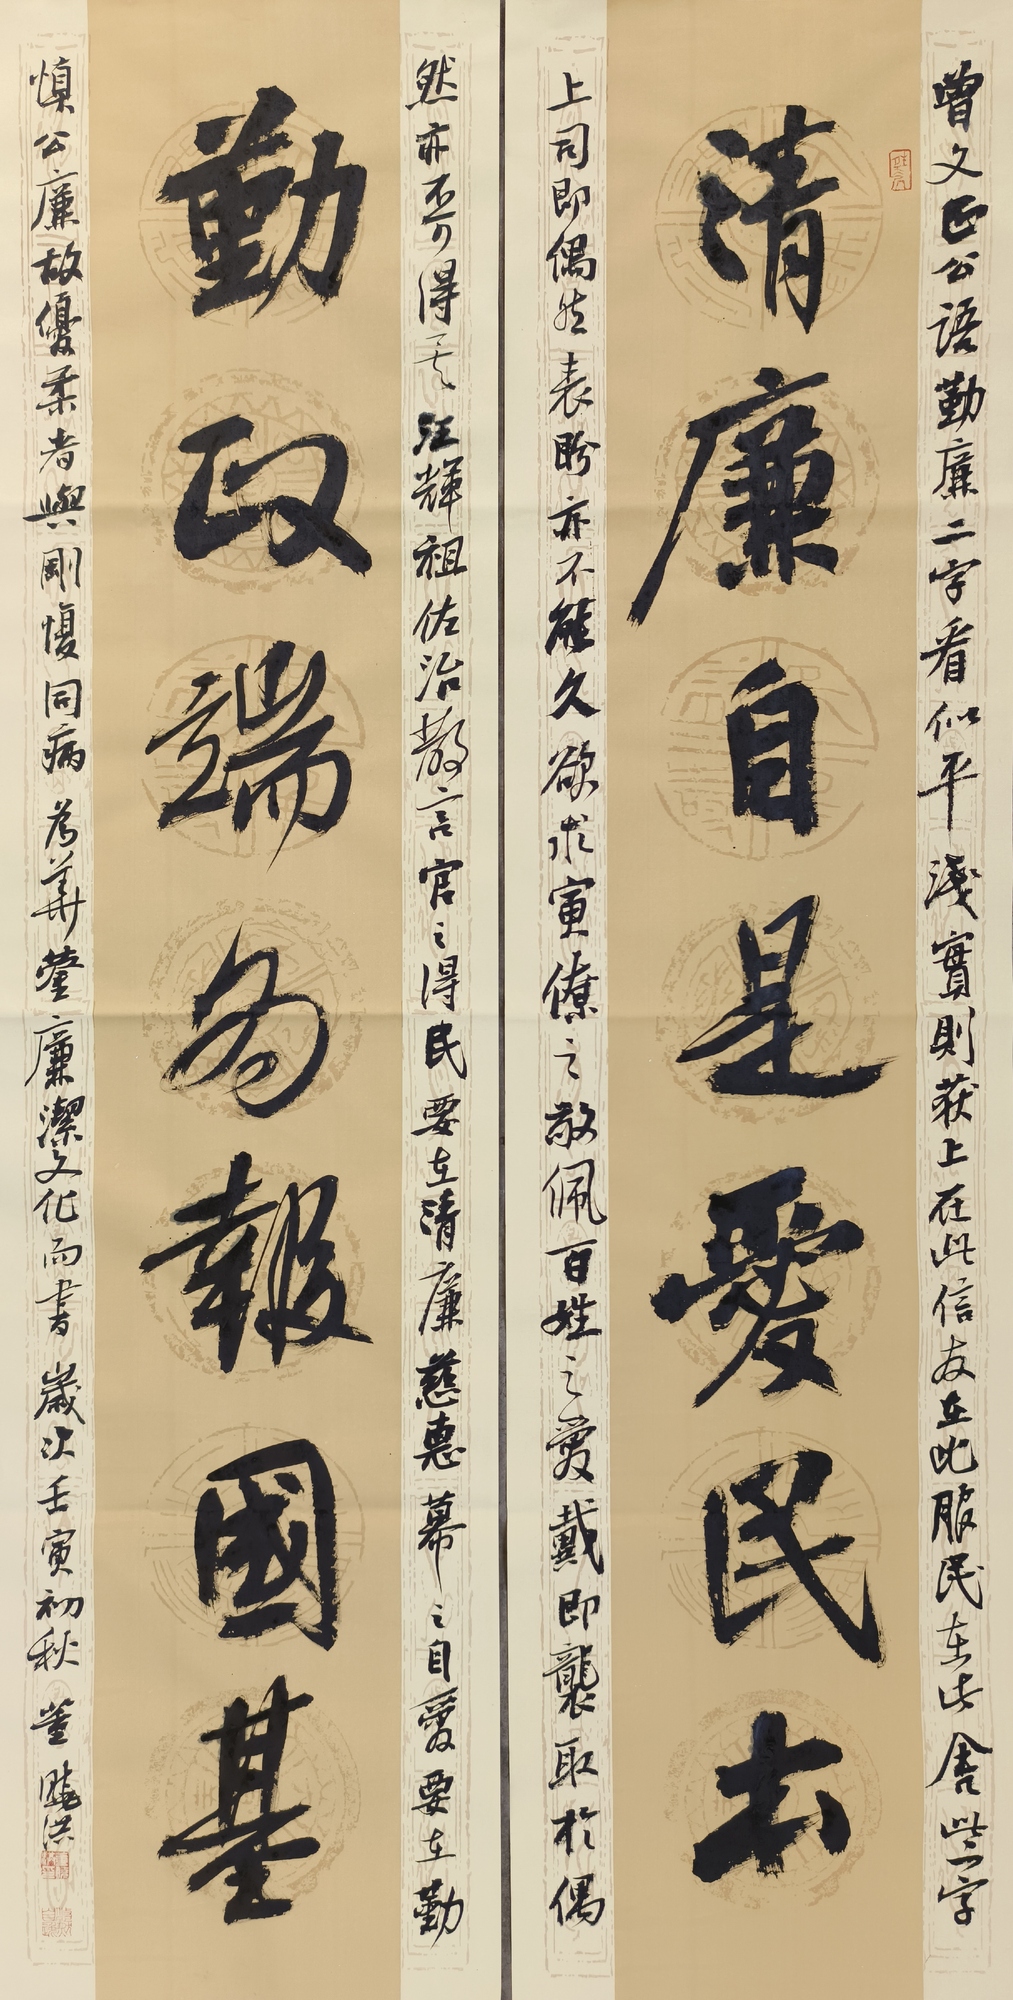 曾文正公語勤廉二字看似平淺實則获上在此信友在此服民在此舍些字
清廉自是愛民本
上司即偶然表盼亦不能久欲求寅僚之敬佩百姓之愛戴即襲取於偶
然亦不可得矣汪輝祖佐治教言官之得民要在清廉慈惠幕之自愛要在勤
勤政端為報國基
慎公廉故優柔者與剛愎同病為華蓥廉潔文化而書歲次壬寅初秋董曉洪